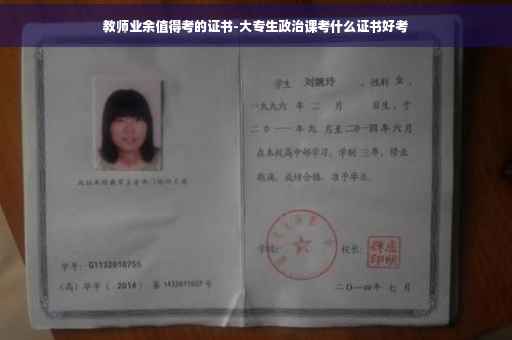 教师业余值得考的证书-大专生政治课考什么证书好考
学生 刘婉玲 ，性别 女 ，
一九九六 年 二 月 日生，于
二0一一 年 九 月至 二0一四 年 六 月
在本校高中部学习，学制 三年，修业
期满，成绩合格，准予毕业。
学校：
校长：
学号：G1132010755
(高) 毕字（ 2014 ）第 1432011007 号
二〇一四年 七 月